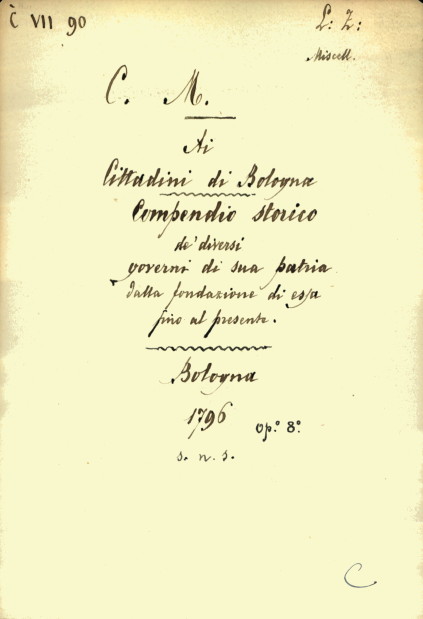 C̀ VII 90
L: Z:
Miscell.
C. M.
Ai
Cittadini di Bologna
Compendio storico
de' diversi
governi di sua patria
dalla fondazione di essa
fino al presente.
Bologna
1796
op.º 8.º
s. n. s.
C